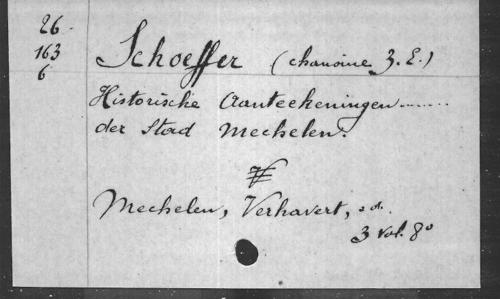 26
163
6
Schoeffer (chanoine J. E.)
Historische Aanteekeningen ........
der Stad Mechelen.
Mechelen, Verhavert, s.d.
3 vol. 8º